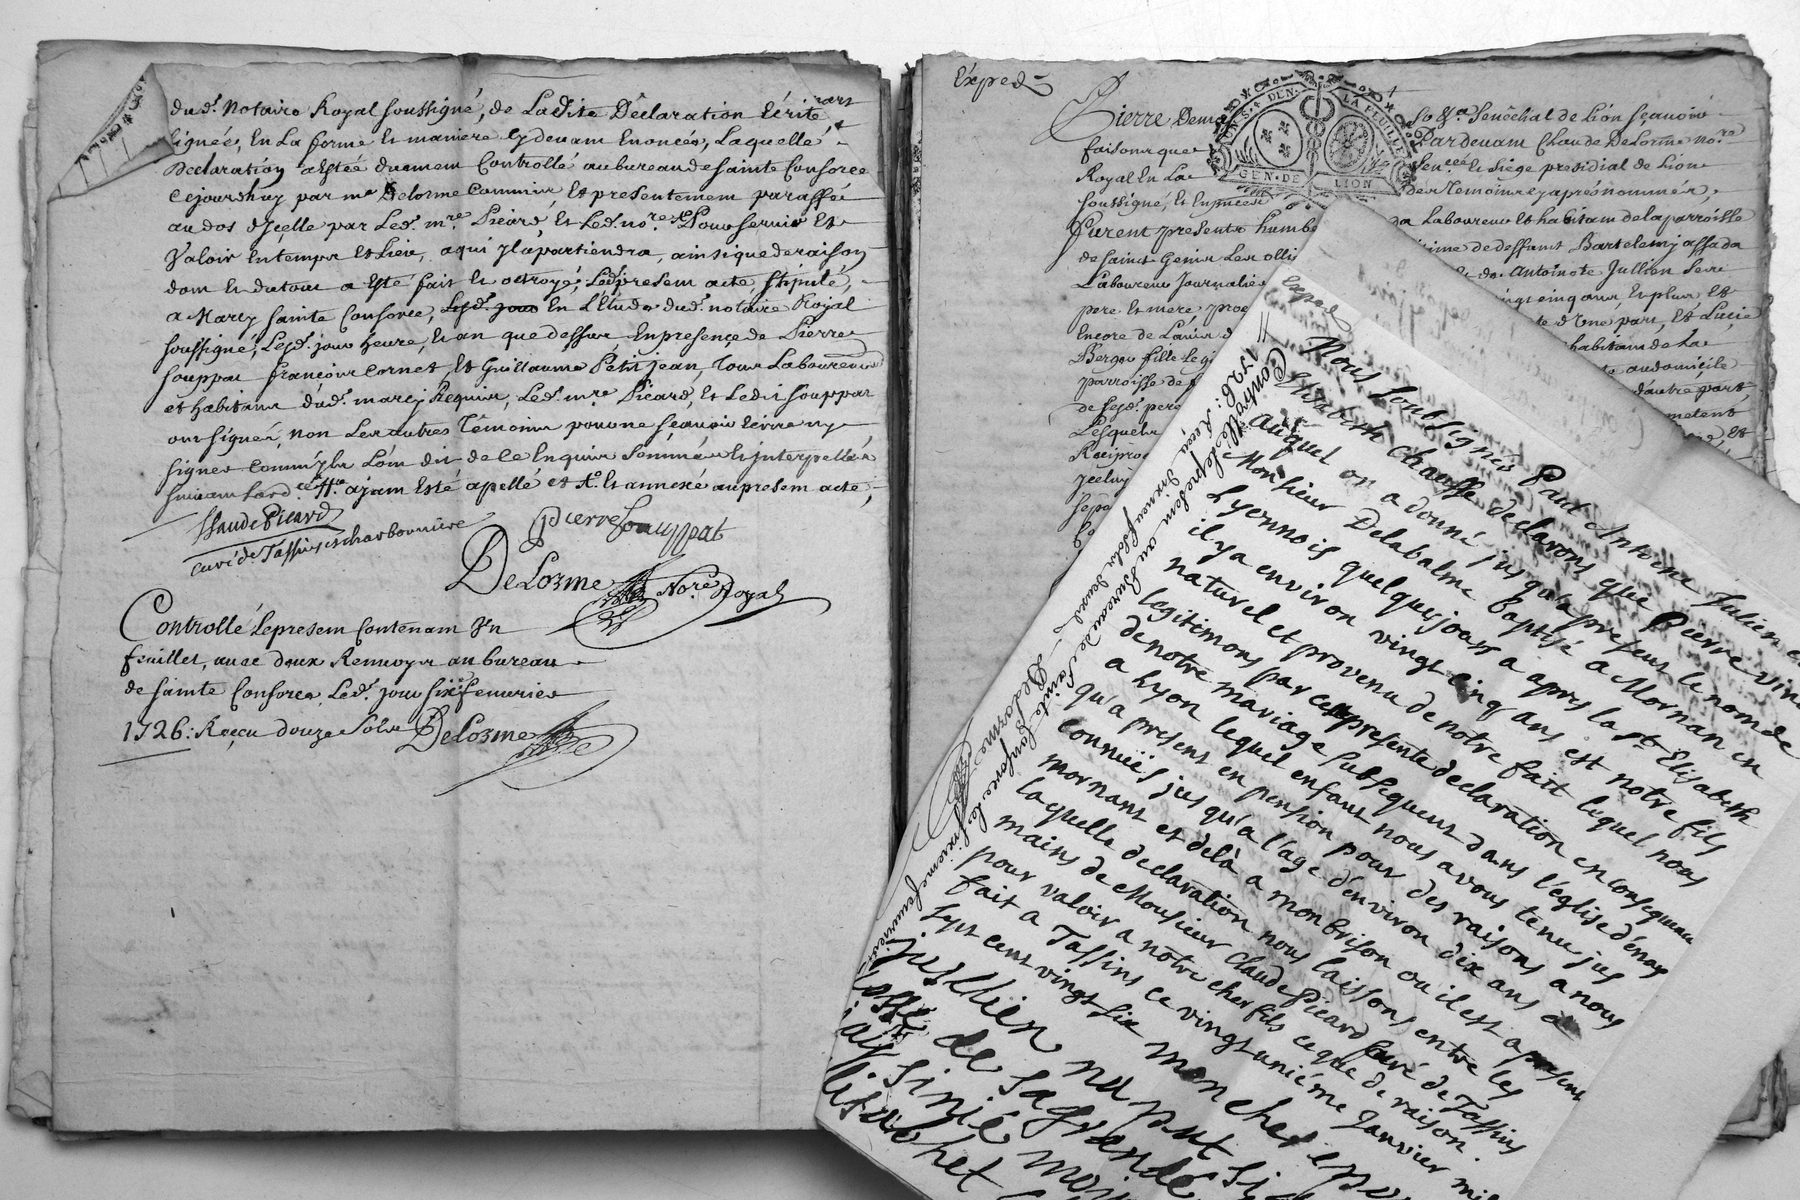 dud.t Notaire Royal soussigné, de Ladite Declaration Ecrite
signée, En La forme Et maniere cy devam Enoncés, Laquelle
Declaration a Estée duement Controllé au bureau de sainte Consorce
Cejourdhuy par m.e Delorme Commis, Et presentement paraffée
au dos d'jcelle par Led. m.re Picard, Et Led. no.re Pour servir Et
Valoir En temps Et Lieu, a qui Jl apartiendra, ainsi que de raison
dom Et du tout a Esté fait Et octroyé; Led. presem acte, stipulé,
a Marcy sainte Consorce, En L'Etude dud. notaire Royal
soussigné, Lesd. jour heure, Et an que dessus, En presence de Pierre
souppat françois Cornet, Et Guillaume Petit jean, Tous Laboureurs
et habitans dud. marcy Requis, Led. m.re Picard, Et Ledit souppat
ont signés, non Les autres Témoins pour ne sçavoir Ecrire ny
signer Comm'jls L'om dit de ce Enquis sommés Et jnterpellés
suivam Lord.ce
Claude Picard
curé de Tassins et charbonniere
pierre souppat
DeLorme No.re Royal
Controllé Le presem Contenam Vn
feuillet, avec deux Renvoys au bureau
de sainte Consorce Led. jour six.e feuvrier
1726: Reçu douze Sols DeLorme
Exped.
Pierre
faison que
Royal En La
soussigné, Et En presence
furent presents humbe
de saint Genis Les olli
Laboureur Journalie
pere Et mere
Encore de L'avis d
Berger fille Legi
parroisse de
de sesd. pere
Lesquels
Reciproq
MOY.NE S.4 DEN. LA FEUILLE
GEN. DE LION
Senéchal de Lion sçavoir
Par devam Claude DeLorme no.re
Sen.cée Et Siege presidial de Lion
des Temoins cy aprés nommés,
da Laboureur Et habitam de la parroisse
time de deffunt Bartelemy assada
Et de Antoinete Jullien sere
ingt cinq ans, Et plus, Et
te d'Vne part, Et Lucie
habitans de La
au domicile
d'autre part,
Exped
1726:
Controllé Le presem au Bureau de sainte Consorce Le sixieme feuvrier
DeLorme
Nous soubsignés Paul Antoine Julien e
Elisabeth Chausse declarons que Pierre vin
auquel on a donné jusqu'a present le nom de
Monsieur Delabalme baptisé a Mornan en
Lyonnois quelques jours apres la S.te Elisabeth
il y a environ vingt cinq ans est notre fils
naturel et provenu de notre fait lequel nous
legitimons par cette presente declaration en consequence
de notre mariage subsequent dans l'église d'énay
a Lyon lequel enfant nous avons tenu jus
qu'a present en pension pour des raisons a nous
connües jusqu'a l'age d'environ dix ans a
mornant et delà a monbrison ou il est a present
laquelle declaration nous laissons entre les
mains de Monsieur Claude Picard Curé de Tassins
pour valoir a notre cher fils ce que de raison.
fait a Tassins ce vingt uniéme Janvier mil
sept cent vingt six mon cher epou
jullien na put si
de sa grande
iay sinié moy
lisabet